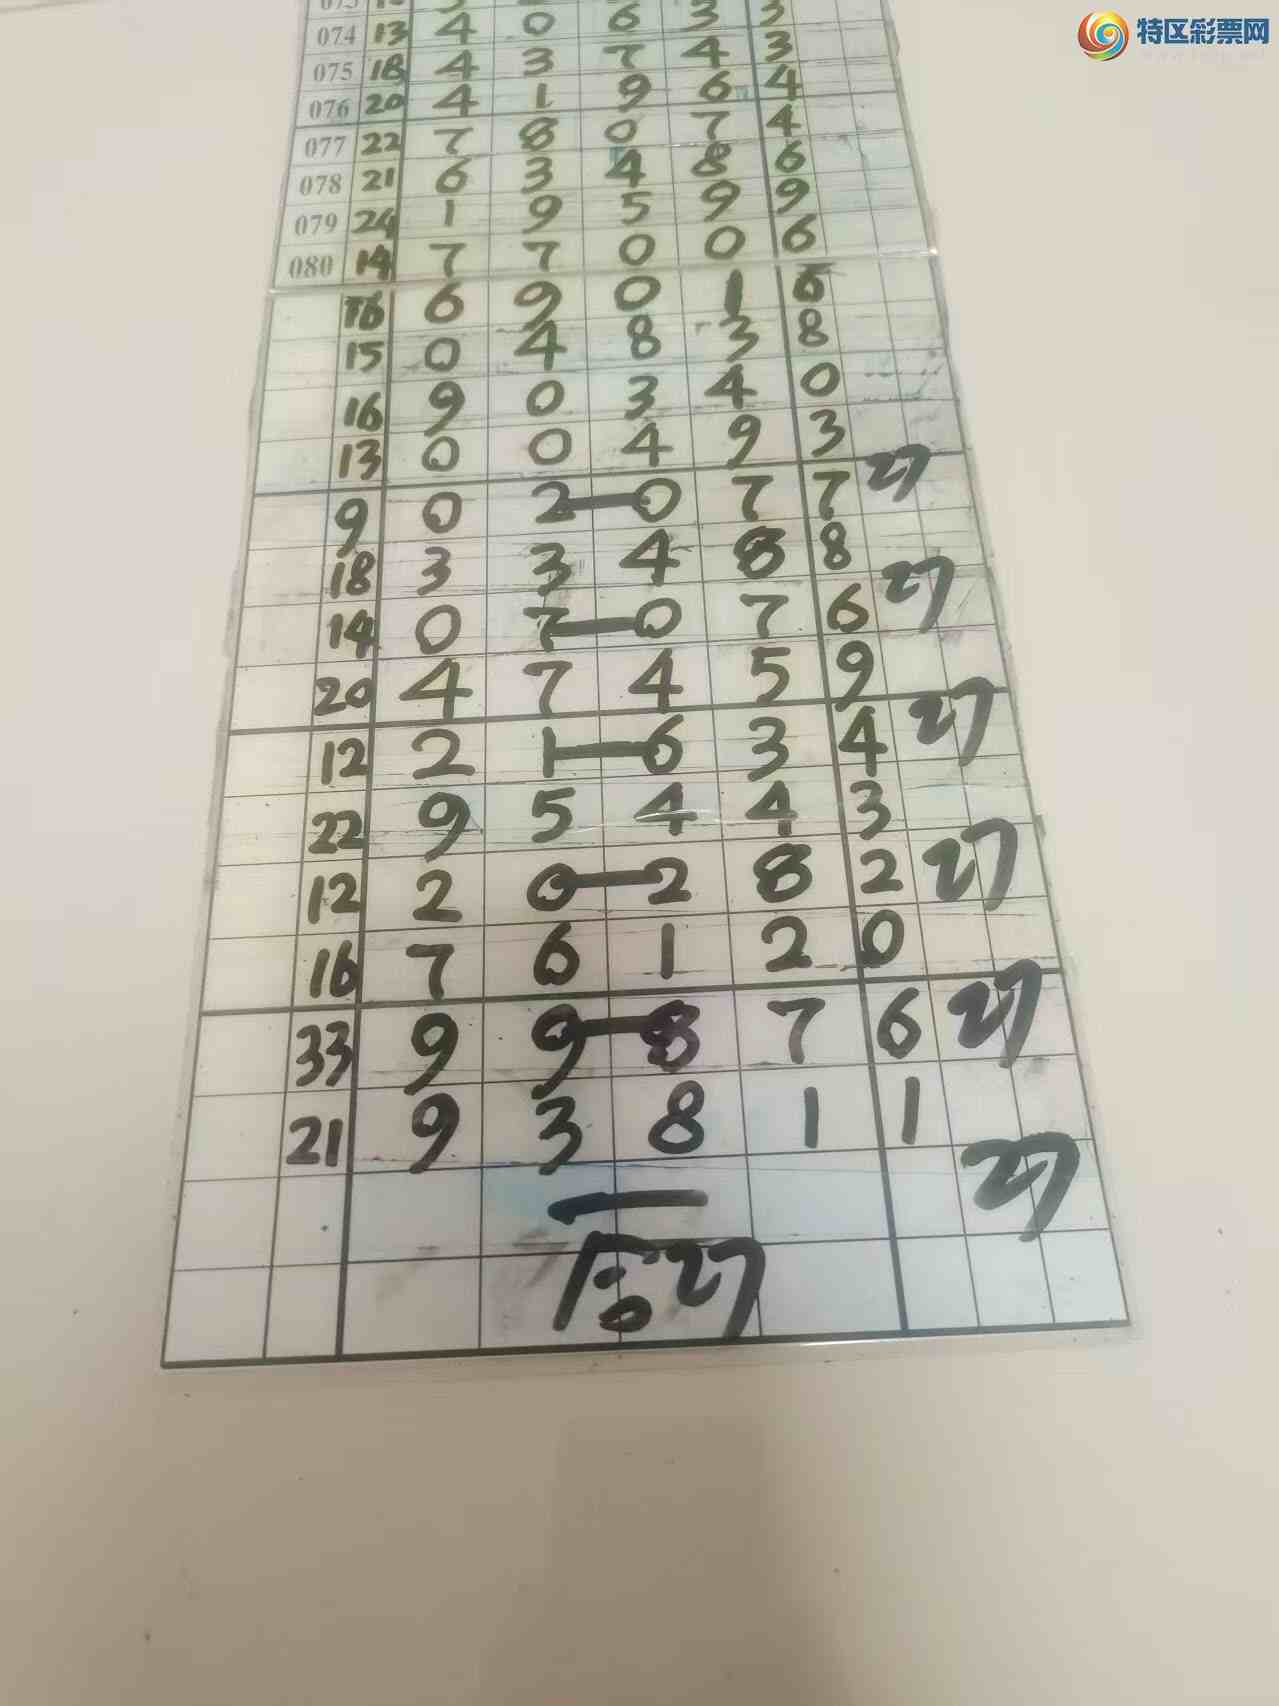 特区彩票网
074 13 4 0 6 3 3
075 18 4 3 7 4 3
076 20 4 1 9 6 4
077 22 7 8 0 7 4
078 21 6 3 4 8 6
079 24 1 9 5 9 9
080 14 7 7 0 0 6
16 6 9 0 1 6
15 0 4 8 3 8
16 9 0 3 4 0
13 0 0 4 9 3
9 0 2 0 7 7 27
18 3 3 4 8 8
14 0 7 0 7 6 27
20 4 7 4 5 9
12 2 1 6 3 4 27
22 9 5 4 4 3
12 2 0 2 8 2 27
16 7 6 1 2 0
33 9 9 8 7 6 27
21 9 3 8 1 1
27
27